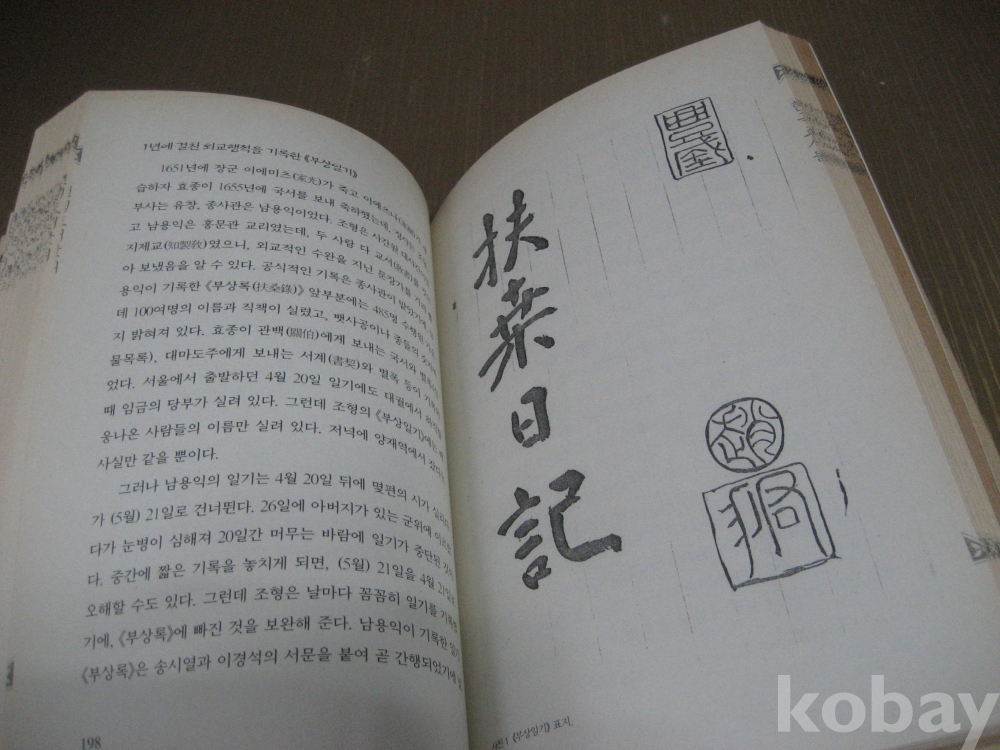 1년에 걸친 외교행적을 기록한《부상일기》
1651년에 장군 이에미츠(家光)가 죽고 이에츠나
습하자 효종이 1655년에 국서를 보내 축하했는데, 정사는
부사는 유창, 종사관은 남용익이었다. 조형은 사간원 대사간
고 남용익은 홍문관 교리였는데, 두 사람 다 교서(敎書)를
지제교(知製敎)였으니, 외교적인 수완을 지닌 문장가를 가려
아 보냈음을 알 수 있다. 공식적인 기록은 종사관이 맡았기에,
용익이 기록한《부상록(扶桑錄)》앞부분에는 485명 수행원
데 100여명의 이름과 직책이 실렸고, 뱃사공이나 종들의 숫자
지 밝혀져 있다. 효종이 관백(關伯)에게 보내는 국서와 별폭
물목록), 대마도주에게 보내는 서계(書契)와 별폭 등이
었다. 서울에서 출발하던 4월 20일 일기에도 대궐에서
때 임금의 당부가 실려 있다. 그런데 조형의《부상일기》에는
웅나온 사람들의 이름만 실려 있다. 저녁에 양재역에서 잤다
사실만 같을 뿐이다.
그러나 남용익의 일기는 4월 20일 뒤에 몇편의 시가
가 (5월) 21일로 건너뛴다. 26일에 아버지가 있는 군위에
다가 눈병이 심해져 20일간 머무는 바람에 일기가 중단된
다. 중간에 짧은 기록을 놓치게 되면, (5월) 21일을 4월 21일로
오해할 수도 있다. 그런데 조형은 날마다 꼼꼼히 일기를
기에,《부상록》에 빠진 것을 보완해 준다. 남용익이 기록한
《부상록》은 송시열과 이경석의 서문을 붙여 곧 간행되었기에
198
扶桑日記
사진1《부상일기》표지.
kobay